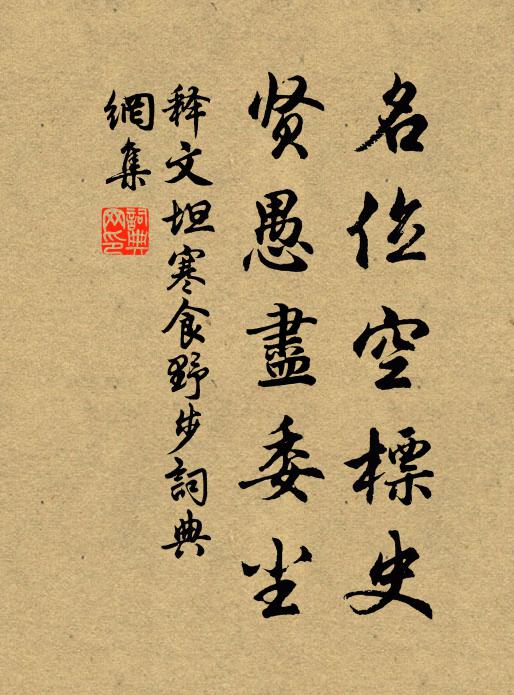 名位空標史
贤愚盡委尘
释文坦寒食野步詞典
網集
詞典網印